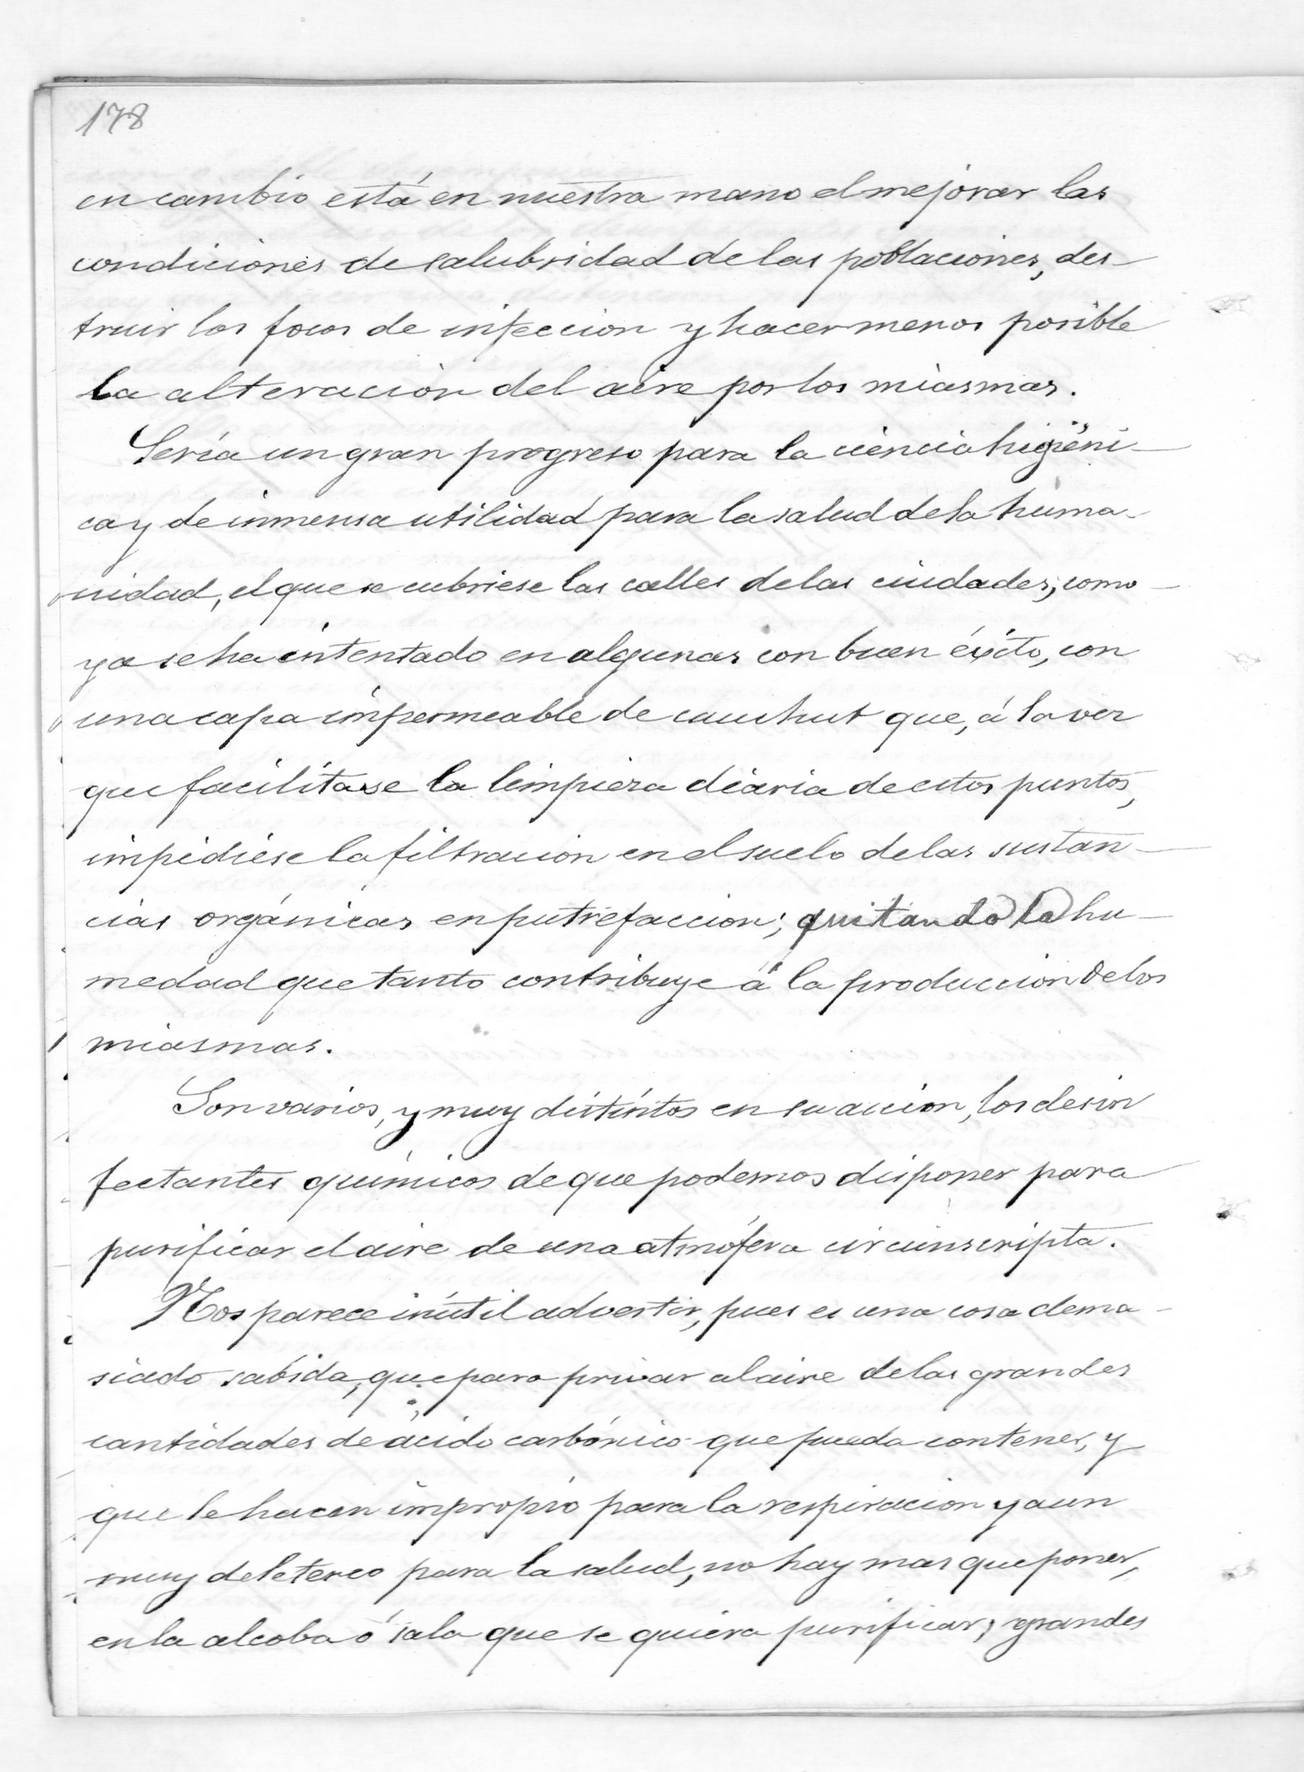 178
en cambio está en nuestra mano el mejorar las
condiciones de salubridad de las poblaciones, des-
truir los focos de infeccion y hacer menos posible
la alteración del aire por los miasmas.
Sería un gran progreso para la ciencia higiéni-
ca y de inmensa utilidad para la salud de la huma-
nidad, el que se cubriese las calles de las ciudades, como
ya se ha intentado en algunas con buen éxito, con
una capa impermeable de cauchut que, á la vez
que facilitase la limpieza diaria de estos puntos,
impidiese la filtracion en el suelo de las sustan-
cias orgánicas en putrefaccion; quitando la hu-
medad que tanto contribuye á la produccion de los
miasmas.
Son varios, y muy distintos en su accion, los desin
fectantes químicos de que podemos disponer para
purificar el aire de una atmósfera circunscripta.
Nos parece inútil advertir, pues es una cosa dema-
siado sabida, que para privar al aire de las grandes
cantidades de ácido carbónico que pueda contener, y
que le hacen impropio para la respiracion y aun
muy deletereo para la salud, no hay mas que poner,
en la alcoba ó sala que se quiera purificar, grandes